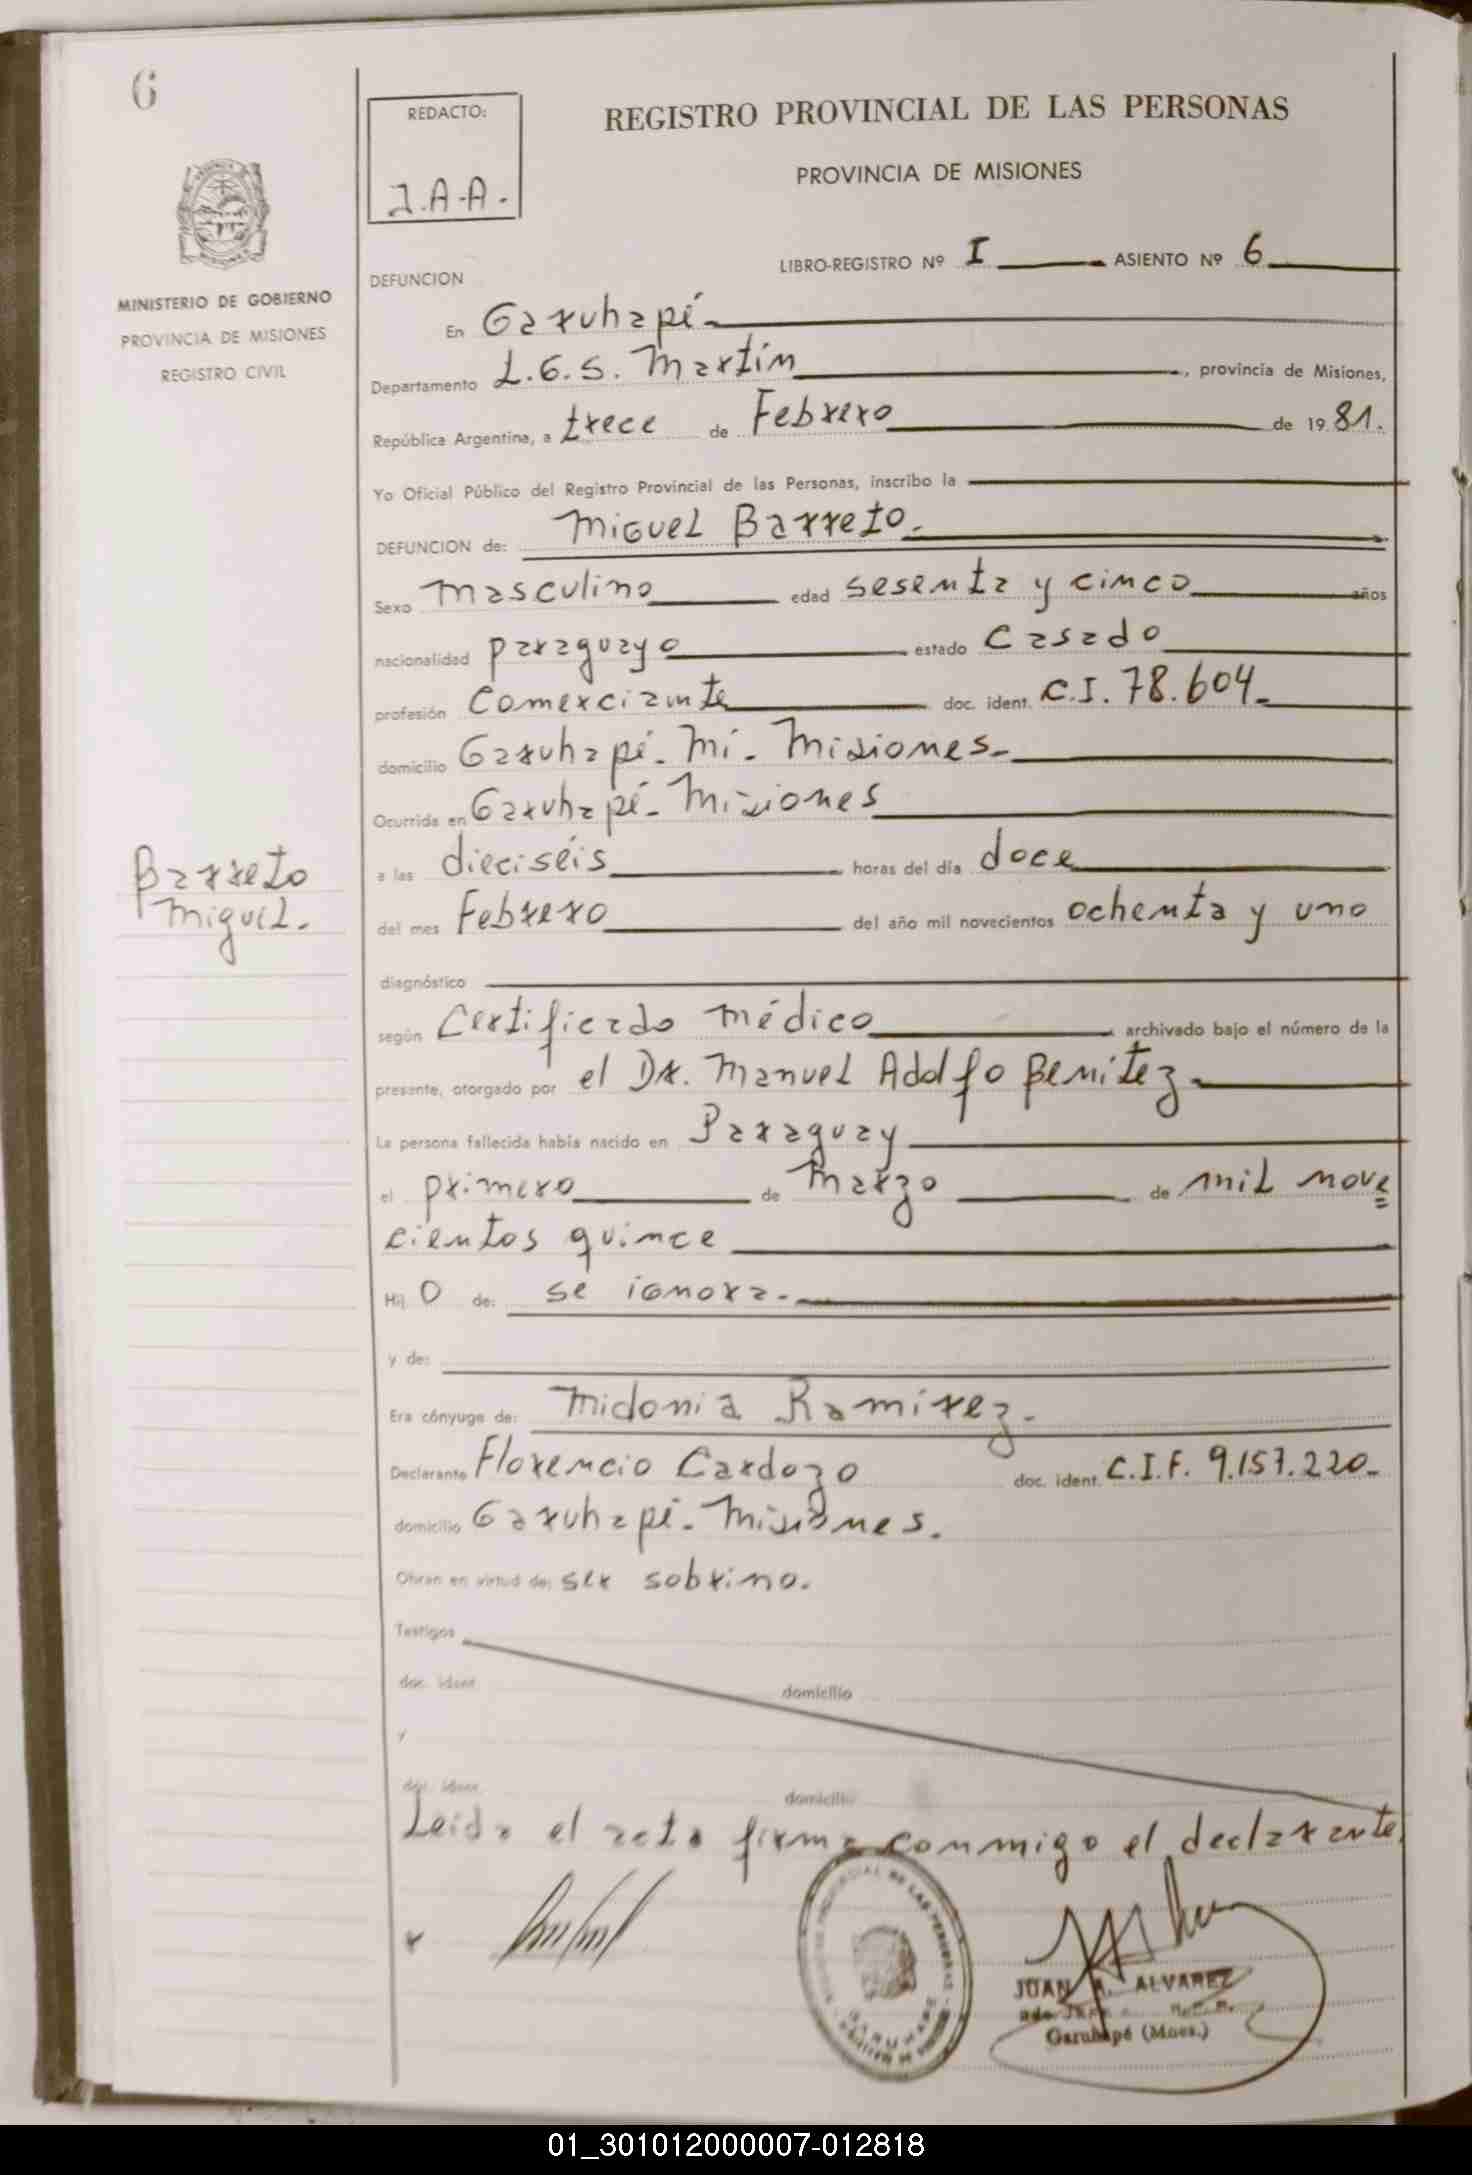 6
REDACTO:
J.A.A.
REGISTRO PROVINCIAL DE LAS PERSONAS
PROVINCIA DE MISIONES
MINISTERIO DE GOBIERNO
PROVINCIA DE MISIONES
REGISTRO CIVIL
LIBRO-REGISTRO Nº I ASIENTO Nº 6
DEFUNCION
En Garuhapé
Departamento L.G.S. Martín, provincia de Misiones,
República Argentina, a trece de Febrero de 1981.
Yo Oficial Público del Registro Provincial de las Personas, inscribo la
DEFUNCION de: Miguel Barreto.
Sexo masculino edad sesenta y cinco años
nacionalidad paraguayo estado Casado
profesión Comerciante doc. ident. C.I. 78.604
domicilio Garuhapé-Mí-Misiones
Ocurrida en Garuhapé-Misiones
a las dieciséis horas del día doce
del mes Febrero del año mil novecientos ochenta y uno
Barreto
Miguel.
diagnóstico
según Certificado médico archivado bajo el número de la
presente, otorgado por el Dr. Manuel Adolfo Benitez
La persona fallecida había nacido en Paraguay
el primero de Marzo de mil nove
cientos quince
Hij O de: se ignora.
y de:
Era cónyuge de: Midonia Ramirez.
Declarante Florencio Cardozo doc. ident. C.I.F. 9.157.220
domicilio Garuhapé-Misiones.
Obran en virtud de: ser sobrino.
Testigos
doc. ident. domicilio
y
doc. ident. domicilio
Leida el acta firma conmigo el declarante
JUAN A. ALVAREZ
Garuhapé (Mnes.)
01_301012000007-012818